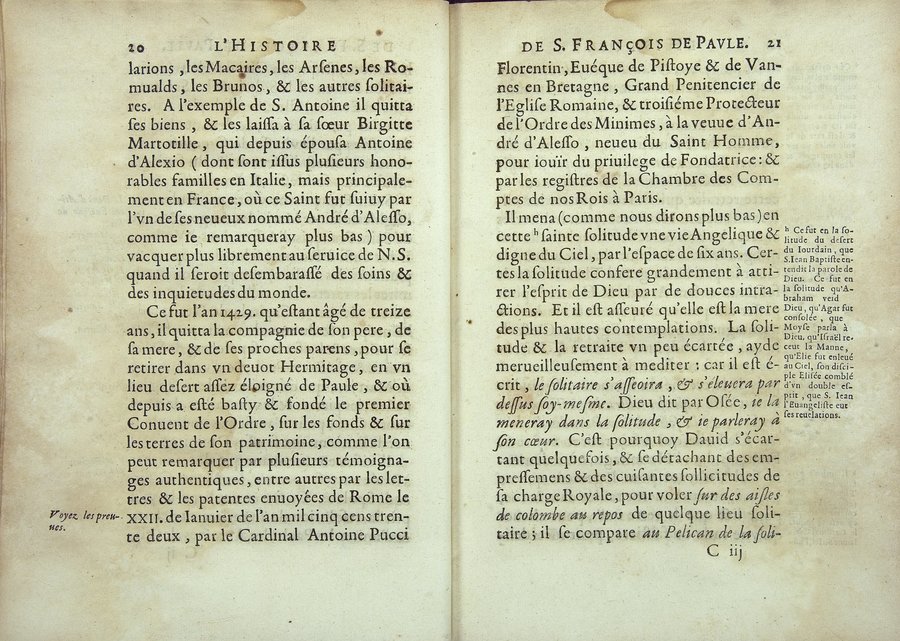 20 L'HISTOIRE
larions, les Macaires, les Arsenes, les Ro-
mualds, les Brunos, & les autres solitai-
res. A l'exemple de S. Antoine il quitta
ses biens, & les laissa à sa sœur Birgitte
Martotille, qui depuis épousa Antoine
d'Alexio (dont sont issus plusieurs hono-
rables familles en Italie, mais principale-
ment en France, où ce Saint fut suiuy par
l'vn de ses neueux nommé André d'Alesso,
comme ie remarqueray plus bas) pour
vacquer plus librement au seruice de N.S.
quand il seroit desembarassé des soins &
des inquietudes du monde.
Ce fut l'an 1429. qu'estant âgé de treize
ans, il quitta la compagnie de son pere, de
sa mere, & de ses proches parens, pour se
retirer dans vn deuot Hermitage, en vn
lieu desert assez éloigné de Paule, & où
depuis a esté basty & fondé le premier
Conuent de l'Ordre, sur les fonds & sur
les terres de son patrimoine, comme l'on
peut remarquer par plusieurs témoigna-
ges authentiques, entre autres par les let-
tres & les patentes enuoyées de Rome le
XXII. de Ianuier de l'an mil cinq cens tren-
te deux, par le Cardinal Antoine Pucci
Voyez les preu-
ues.
DE S. FRANÇOIS DE PAVLE. 21
Florentin, Euéque de Pistoye & de Van-
nes en Bretagne, Grand Penitencier de
l'Eglise Romaine, & troisiéme Protecteur
de l'Ordre des Minimes, à la veuue d'An-
dré d'Alesso, neueu du Saint Homme,
pour iouïr du priuilege de Fondatrice: &
par les registres de la Chambre des Com-
ptes de nos Rois à Paris.
Il mena (comme nous dirons plus bas) en
cette h sainte solitude vne vie Angelique &
digne du Ciel, par l'espace de six ans. Cer-
tes la solitude confere grandement à atti-
rer l'esprit de Dieu par de douces intra-
ctions. Et il est asseuré qu'elle est la mere
des plus hautes contemplations. La soli-
tude & la retraite vn peu écartée, ayde
merueilleusement à mediter: car il est é-
crit, le solitaire s'asseoira, & s'eleuera par
dessus soy-mesme. Dieu dit par Osée, ie la
meneray dans la solitude, & ie parleray à
son cœur. C'est pourquoy Dauid s'écar-
tant quelquefois, & se détachant des em-
pressemens & des cuisantes sollicitudes de
sa charge Royale, pour voler sur des aisles
de colombe au repos de quelque lieu soli-
taire; il se compare au Pelican de la soli-
C iij
h Ce fut en la so-
litude du desert
du Iourdain, que
S. Iean Baptiste en-
tendit la parole de
Dieu. Ce fut en
la solitude qu'A-
braham veid
Dieu, qu'Agar fut
consolée, que
Moyse parla à
Dieu, qu'Israël re-
ceut la Manne,
qu'Elie fut enleué
au Ciel, son disci-
ple Elisée comblé
d'vn double es-
prit, que S. Iean
l'Euangeliste eut
ses reuelations.